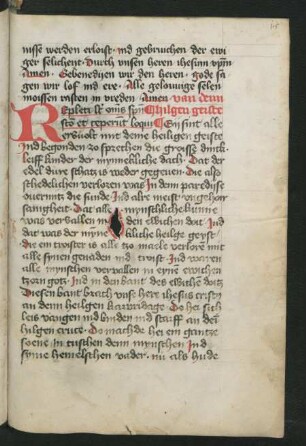 nisse werden erloist · ind gebruichen der ewi
ger selicheit · Durch unsen heren ihesum xpm
Amen · Gebenedijen wir den heren · gode sa
gen wir lof ind ere · Alle geloivige selen
moissen rasten in vreden · Amen · van dem
Repleti st oms spu hilgen geiste
scto et ceperut loqui Sy sint alle
ervult mit deme heiligen geiste
Ind begonden zo sprechen die groisse
der mynnebliche dach · Dat der
edel dure schatz is weder gegeven · Die also
schedelichen verloren was In dem paredijse
overmitz die sunde Ind alre meist
Dat alle mynschliche kunne
was vervallen in den ewichen doit Ind
dat was der mynnebliche heilge geyst
die ein troister is alle tzo maele verloren mit
alle synen genaden ind troist · Ind waren
alle mynschen vervallen in eyne ewichen
tzorn gotz · Ind in den bant des ewichen doitz
Diesen bant brach unse here ihesus cristus
an dem heiligen karvridage · Do he sich
leis vangen ind binden ind starff an dem
hilgen cruce · Do machde hei ein gantze
soene in tuschen dem mynschen Ind
syme hemelschen vader · nu als hude